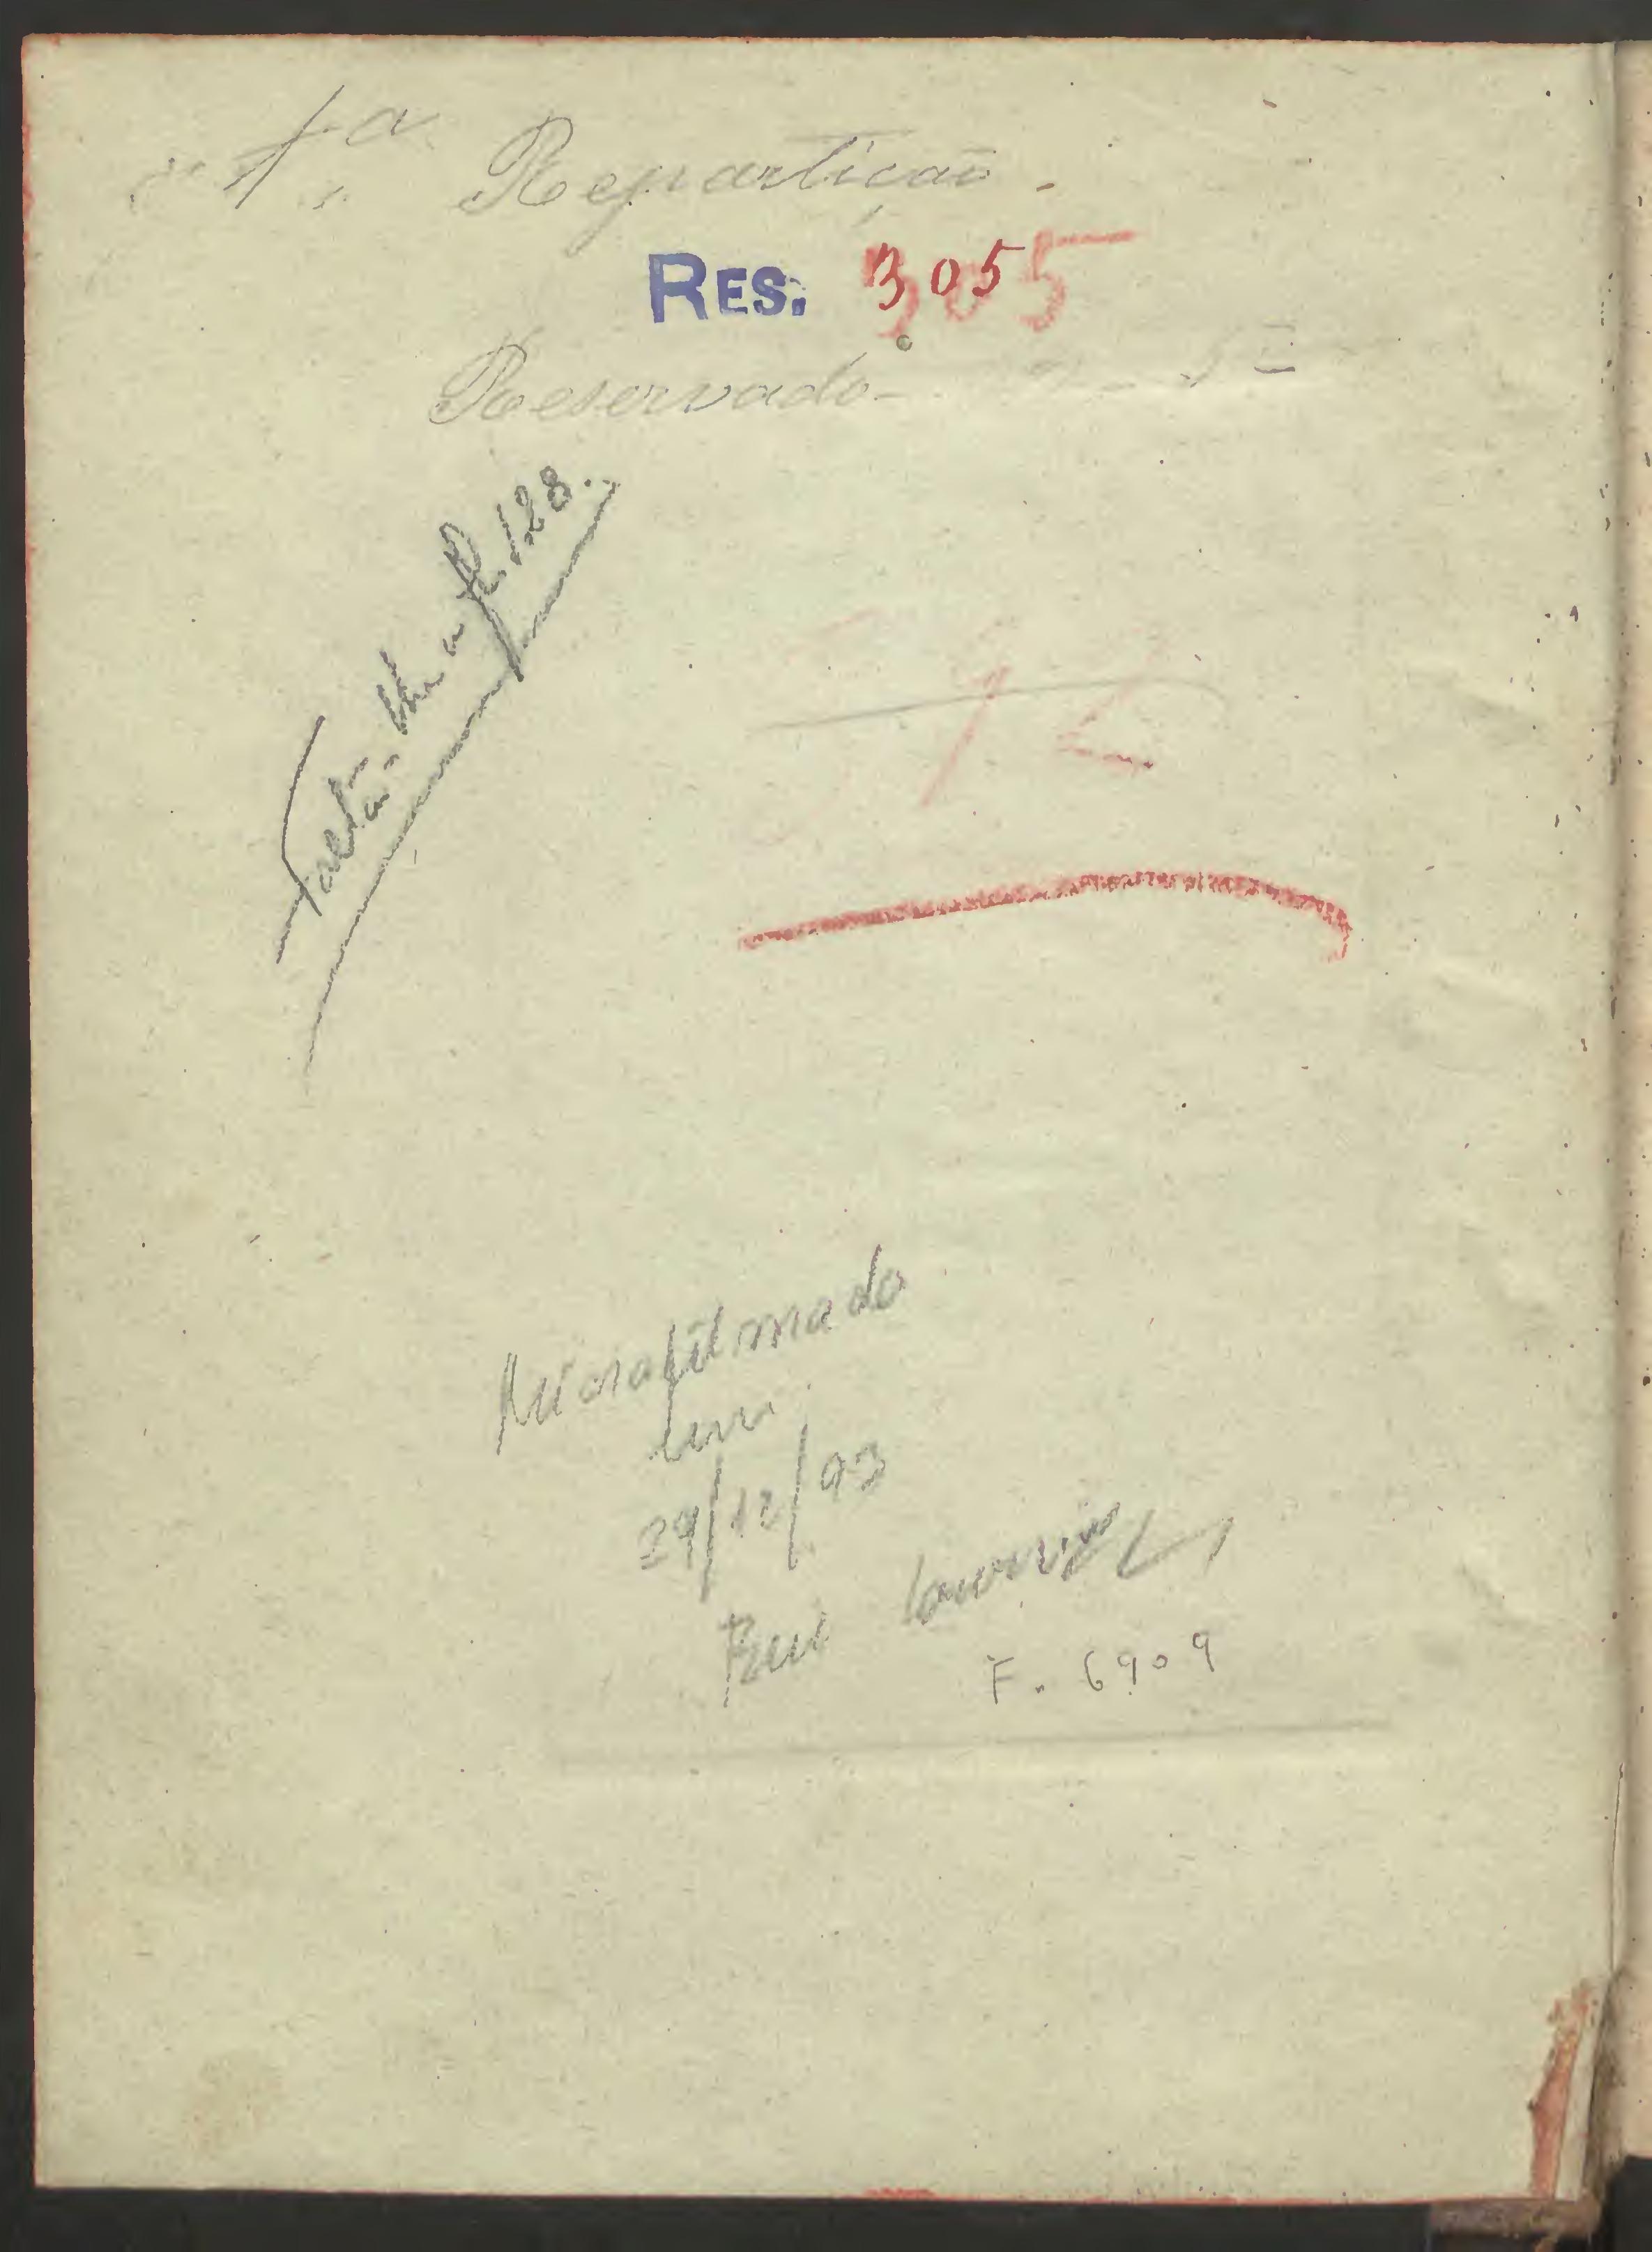 1.ª Repartição
RES. 3055
Reservado
Falta-lhe a fl. 128.
12
Microfilmado
em
29/12/93
Rui
F. 6909